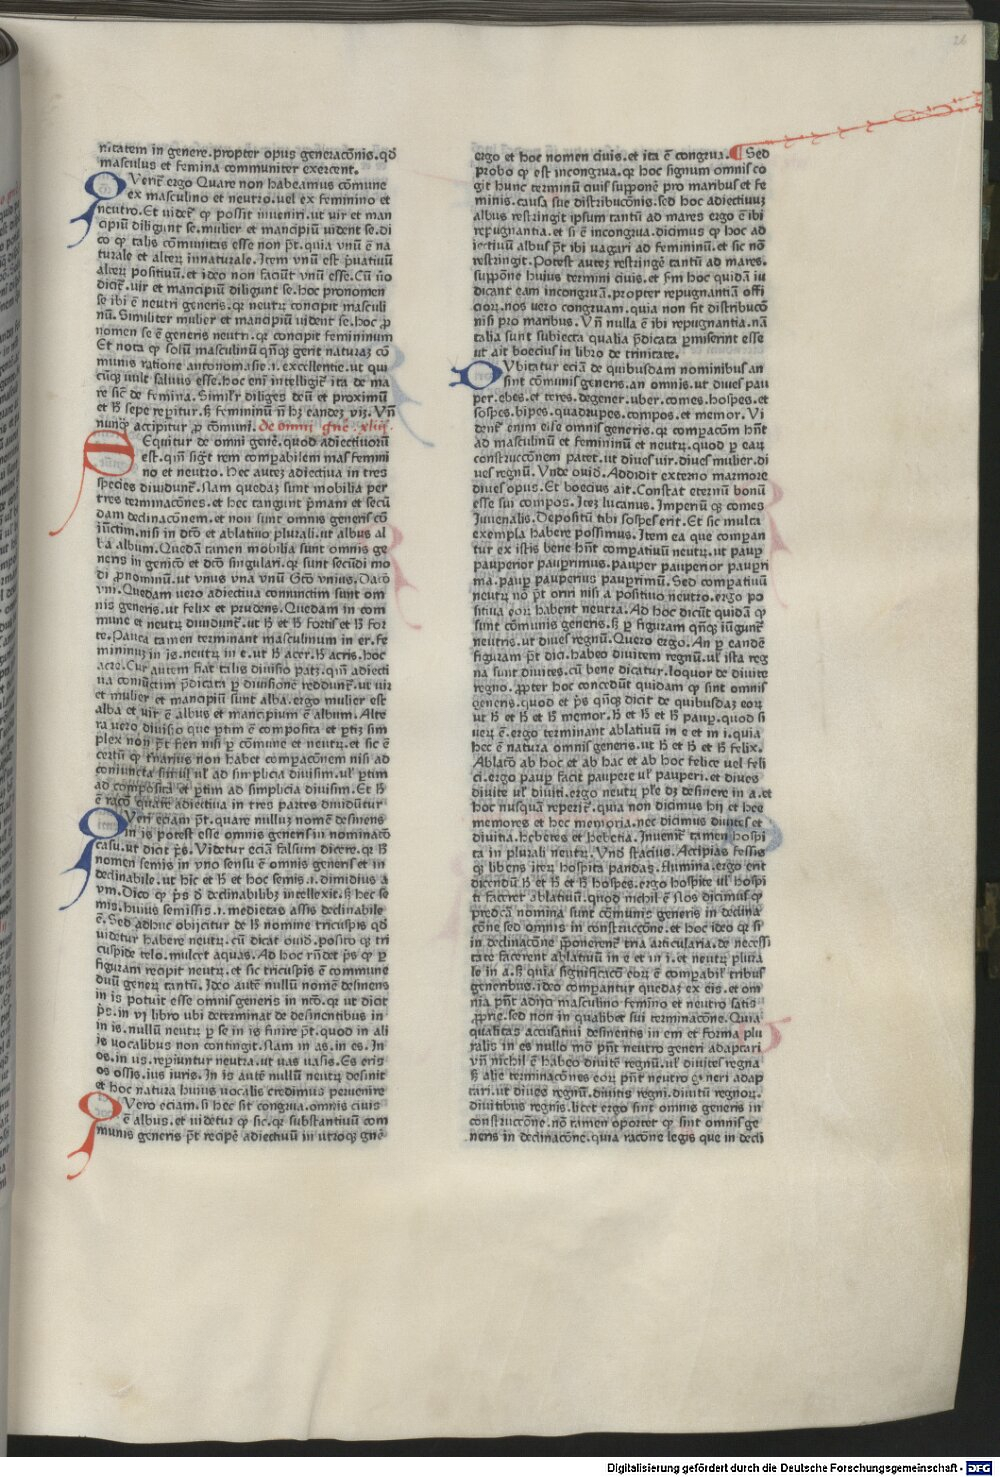 26
nitatem in genere.propter opus generacõnis.qđ
masculus et femina communiter exercent.
QVerit̃ ergo Quare non habeamus cõmune
ex masculino et neutro.vel ex feminino et
neutro.Et videt̃ ꝙ possit inveniri.ut vir et man
cipiũ diligunt se.mulier et mancipiũ vident se.di
co ꝙ talis cõmunitas esse non p̃t.quia vnũ ẽ na
turale et alterꝫ innaturale.Item vnũ est p̃uatiuũ
alterꝫ positiuũ.et ideo non faciũt vnũ esse.Cũ ṽo
dicit̃.vir et mancipiũ diligunt se.hoc pronomen
se ibi ẽ neutri generis.qꝛ neutrꝫ concipit masculi
nũ.Similiter mulier et mancipiũ vident se.hoc ꝓ
nomen se ẽ generis neutri.qꝛ concipit femininum
Et nota ꝙ solũ masculinũ qñqꝫ gerit naturaꝫ cõ
munis ratione antonomasie.i.excellentie.ut qui
cũqꝫ vult saluus esse.hoc eni̅ intelligit̃ ita de ma
re sic̃ de femina.Similr̃ diliges deũ et proximũ
et ħ sepe repitur.ꝫ femininũ ñ hꝫ eandeꝫ viꝫ.Vñ
nũnqꝫ accipitur ꝓ cõmuni. de omni gñe.xliij.
SEquitur de omni genẽ.quod adiectiuorũ
est.qm̃ sigt̃ rem comp̃abilem mas femini
no et neutro.Hec auteꝫ adiectiua in tres
species diuidunt̃.Nam quedaꝫ sunt mobilia per
tres terminacõnes.et hec tangunt p̃mam et secũ
dam declinacõnem.et non sunt omnis generis cõ
iũctim.nisi in dtõ et ablatiuo plurali.ut albus al
ba album.Quedã tamen mobilia sunt omnis ge
neris in genitõ et dtõ singulari.qꝛ sunt secũdi mo
di ꝓnominũ.ut vnus vna vnũ Gtõ vnius.Datõ
vni.Quedam vero adiectiua coniunctim sunt om
nis generis.ut felix et prudens.Quedam in com
mune et neutrꝫ diuidunt̃.ut ħ et ħ fortis et ħ for
te.Pauca tamen terminant masculinum in er.fe
mininuꝫ in is.neutrꝫ in e.ut ħ acer.ħ acris.hoc
acre.Cur autem fiat talis diuisio patꝫ.qm̃ adiecti
ua coniũctim p̃dicata ꝑ diuisionẽ reddunt̃.ut vir
et mulier et mancipiũ sunt alba.ergo mulier est
alba et vir ẽ albus et mancipium ẽ album.Alte
ra vero diuisio que p̃tim ẽ composita et p̃tiꝫ sim
plex non p̃t fieri nisi ꝑ cõmune et neutrꝫ.et sic ẽ
certũ ꝙ t̃narius non habet compacõnem nisi ad
coniuncta simul ul̃ ad simplicia diuisim.ul̃ p̃tim
ad composita et p̃tim ad simplicia diuisim.Et ħ
ẽ racõ quare adiectiua in tres partes diuidũtur
QVeri eciam p̃t.quare nulluꝫ nomẽ desinens
in is potest esse omnis generis in nominatõ
casu.ut dicit p̃s.Videtur eciã falsum dicere.qꝛ ħ
nomen semis in vno sensu ẽ omnis generis et in
declinabile.ut hic et ħ et hoc semis.i.dimidius a
vm.Dico ꝙ p̃s đ declinabilibꝫ intellexit.ꝫ hec se
mis.huius semissis.i.medietas assis declinabile
ẽ.Sed adhuc obijcitur de ħ nomine tricuspis qđ
videtur habere neutrꝫ.cũ dicat ouiđ.posito qꝫ tri
cuspide telo.mulcet aquas.Ad hoc rñdet p̃s ꝙ ꝑ
figuram recipit neutrꝫ.et sic tricuspis ẽ commune
duũ generꝫ tantũ.Ideo autẽ nullũ nomẽ desinens
in is potuit esse omnis generis in ntõ.qꝛ ut dicit
p̃s.in vj libro ubi determinat de desinentibus in
in is.nullũ neutrꝫ ꝑ se in is finire p̃t.quod in ali
is vocalibus non contingit.Nam in as.in es.In
os.in us.repiuntur neutra.ut uas uasis.Es eris
os ossis.ius iuris.In is autẽ nullũ neutrꝫ desinit
et hoc natura huius vocalis credimus peruenire
QVero eciam.si hec sit congrua.omnis ciuis
ẽ albus.et videtur ꝙ sic.qꝛ substantiuũ com
munis generis p̃t recipẽ adiectiuũ in utroqꝫ gnẽ
ergo et hoc nomen ciuis.et ita ẽ congrua. Sed
probo ꝙ est incongrua.qꝛ hoc signum omnis co
git hunc terminũ ciuis supponẽ pro maribus et fe
minis.causa sue distribucõnis.sed hoc adiectiuuꝫ
albus restringit ipsum tantũ ad mares ergo ẽ ibi
repugnantia.et si ẽ incongrua.dicimus ꝙ hoc ad
iectiuũ albus p̃t ibi vagari ad femininũ.et sic nõ
restringit.Potest auteꝫ restringẽ tantũ ad mares.
suppõne huius termini ciuis.et s̃m hoc quidã iu
dicant eam incongruã.propter repugnantiã offi
ciorꝫ.nos vero congruam.quia non fit distribucõ
nisi pro maribus.Vñ nulla ẽ ibi repugnantia.nã
talia sunt subiecta qualia p̃dicata p̃miserint esse
ut ait boecius in libro de trinitate.
DVbitatur eciã de quibusdam nominibus an
sint cõmunis generis.an omnis.ut diues pau
per.ebes.et teres.degener.uber.comes.hospes.et
sospes.bipes.quadrupes.compos.et memor.Vi
dent̃ enim esse omnis generis.qꝛ compacõm hñt
ad masculinũ et femininũ et neutrꝫ.quod ꝑ earꝫ
construccõnem patet.ut diues uir.diues mulier.di
ues regnũ.Vnde ouiđ.Addidit externo marmore
diues opus.Et boecius ait.Constat eternũ bonũ
esse sui compos.Iteꝫ lucanus.Imperiũ qꝫ comes
Iuuenalis.Depositũ tibi sospes erit.Et sic multa
exempla habere possimus.Item ea que compan
tur ex istis bene hñt compatiuũ neutrꝫ.ut paup̃
pauperior pauprimus.pauper pauperior paupri
ma.paup̃ pauperius pauprimũ.Sed compatiuũ
neutrꝫ nõ p̃t oriri nisi a positiuo neutro.ergo po
sitiua eorꝫ habent neutra.Ad hoc dicũt quidã ꝙ
sunt cõmunis generis.ꝫ ꝑ figuram qñqꝫ iũgunt̃
neutris.ut diues regnũ.Quero ergo.An ꝑ eandẽ
figuram p̃t dici.habeo diuitem regnũ.ul̃ ista reg
na sunt diuites.cũ bene dicatur.loquor de diuite
regno.ꝓpter hoc concedũt quidam ꝙ sint omnis
generis.quod et p̃s qñqꝫ dicit de quibusdaꝫ eorꝫ
ut ħ et ħ et ħ memor.ħ et ħ et ħ paup̃.quod si
verꝫ ẽ.ergo terminant ablatiuũ in e et in i.quia
hec ẽ natura omnis generis.ut ħ et ħ et ħ felix.
Ablatõ ab hoc et ab hac et ab hoc felice uel feli
ci.ergo paup̃ facit paupere ul̃ pauperi.et diues
diuite ul̃ diuiti.ergo neutrꝫ pl̃e dꝫ desinere in a.et
hoc nusquã reperit̃.quia non dicimus hij et hee
memores et hec memoria.nec dicimus diuites et
diuitia.hebetes et hebetia.Inuenit̃ tamen hospi
ta in plurali neutrꝫ.Vnđ stacius.Accipias fessis
qꝫ libens iterꝫ hospita pandas.flumina.ergo erit
dicendũ ħ et ħ et ħ hospes.ergo hospite ul̃ hospi
ti faceret ablatiuũ.quod nichil ẽ Nos dicimus ꝙ
predcã nomina sunt cõmunis generis in declina
cõne sed omnis in construccõne.et hoc ideo qꝛ si
in declinacõne p̃ponerent̃ tria articularia.de necessi
tate facerent ablatiuũ in e et in i.et neutrꝫ plura
le in a.ꝫ quia significacõ eorꝫ ẽ comp̃abil̃ tribus
generibus.ideo compantur quedaꝫ ex eis.et om
nia pñt adijci masculino femino et neutro satis
ꝓprie.sed non in qualibet sui terminacõne.Quia
qualitas accusatiui desinentis in em et forma plu
ralis in es nullo mõ pñt neutro generi adaptari
vñ nichil ẽ habeo diuitẽ regnũ.ul̃ diuites regna
ꝫ alie terminacõnes eorꝫ pñt neutro generi adap
tari.ut diues regnũ.diuitis regni.diuitũ regnorꝫ.
diuitibus regnis.licet ergo sint omnis generis in
construccõne.nõ tamen oportet ꝙ sint omnis ge
neris in declinacõne.quia racõne legis que in decli
Digitalisierung gefördert durch die Deutsche Forschungsgemeinschaft - DFG